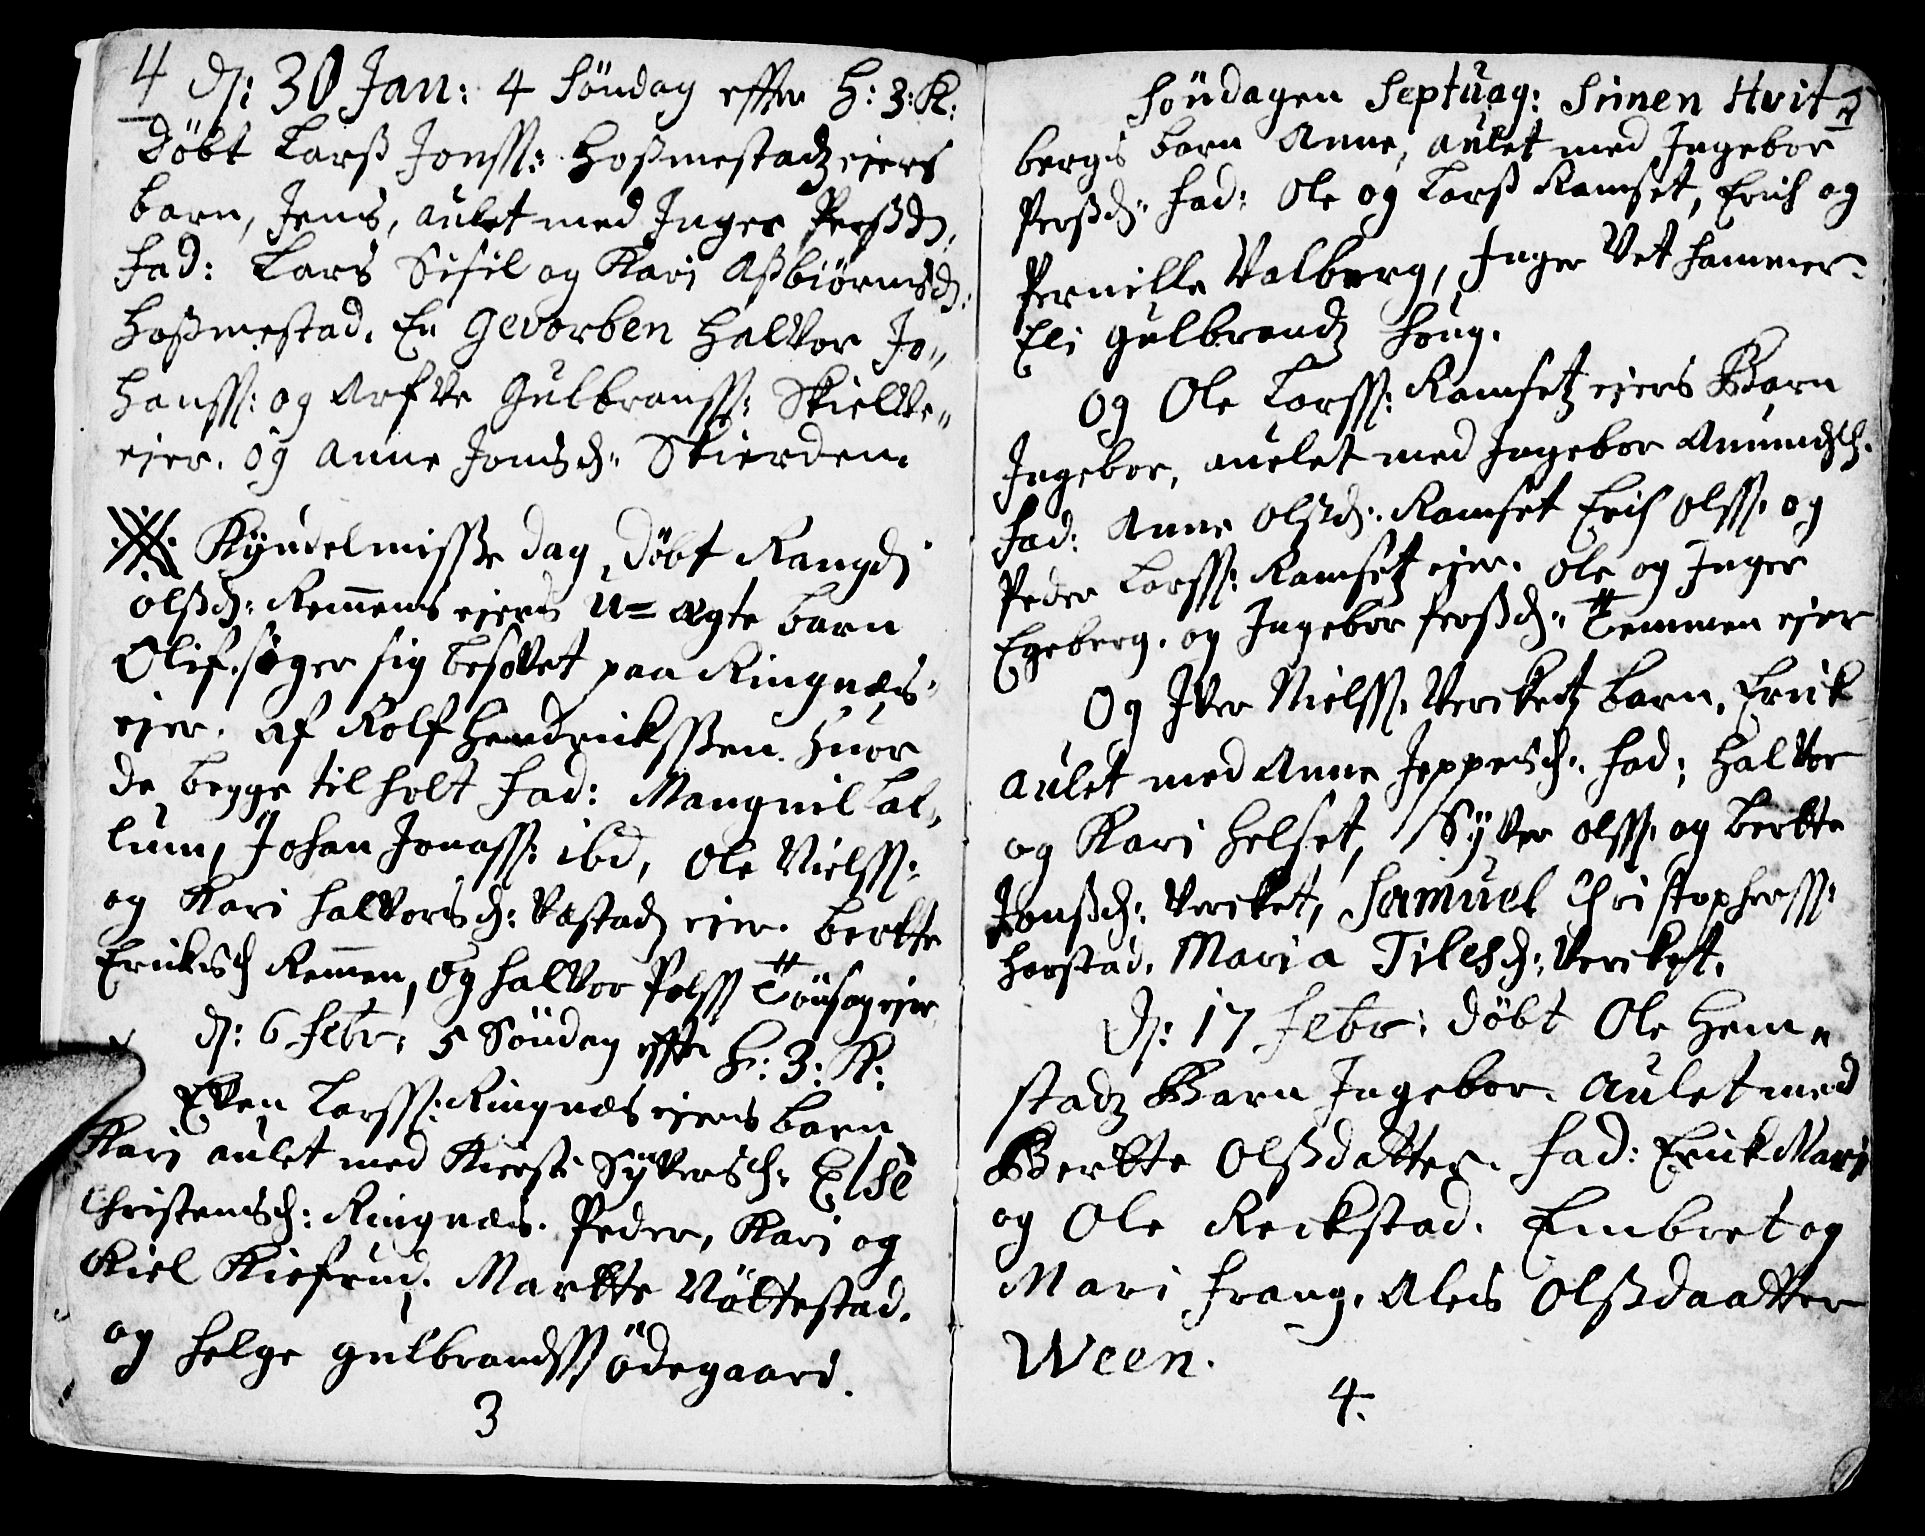 4 dñ: 30 Jan: 4 Söndag effter H: 3: K:
Döbt Larß Jonss: Hoßmestadz eiers
barn, Jens, aulet med Inger Perßdr.
fad: Lars Sisil og Kari Aßbiörnsdr:
Hoßmestad. En Gevorben Halvor Jo„
hanss: og Gulbranss: Skielve„
eier. og Anne Jonsdr: Skierden.
Kyndelmisse dag, döbt Rangdi
olßdr: Remmens eiers u=ægte barn
Olif. siger sig besovet paa Ringnæs„
eier. af Rolf Hendrickssen. huor
de begge til holt fad: Mangnil Lal„
lum, Johan Jonass: ibd, Ole Nielss:
og Kari Halvorsdr: Vestad eier. berthe
Ericksdr Remmen, og Halvor Polss eier
dñ: 6 febr: 5 Söndag effter H: 3: K:
Even Larss: Ringnæs eiers barn
Kari aulet med Kiersti Syversdr: Else
Christensdr: Ringnæs. Peder, Kari og
Kiel Kiefrud. Marthe Nöttestad.
og Helge gulbrandss ödegaard.
3
Söndagen Septuag: Simen Hvit
bergs barn Anne, aulet med Ingebor
Perßdr: fad: Ole og Larß Ramset, Erich og
Pernille Valberg, Inger Vethammer.
Eli gulbrandz Houg.
Og Ole Larss: Ramsetz eiers Barn
Ingebor, auelet med Ingebor Amundsdr.
fad: Anne olsdr. Ramset Erich olss: og
Peder Larss: Ramsetz eier. Ole og Inger
Egeberg. og Ingebor Perßdr: Temmen eier
Og Iver Nielss. Verketz barn. Erick
aulet med Anne Jeppesdr. fad: Halvor
og Kari Helset, Syver olss: og berthe
Jonßdr: Verket, Samuel Christophers:
Horstad. Maria Tilesdr: Verket.
Dñ: 17 febr: döbt Ole Hem„
stadz Barn Ingebor. Aulet med
Berthe Olßdatter. fad: Erick Mari
og Ole Reckstad. Embret og
Mari frang. Aleis Olßdaatter
Ween.
4.